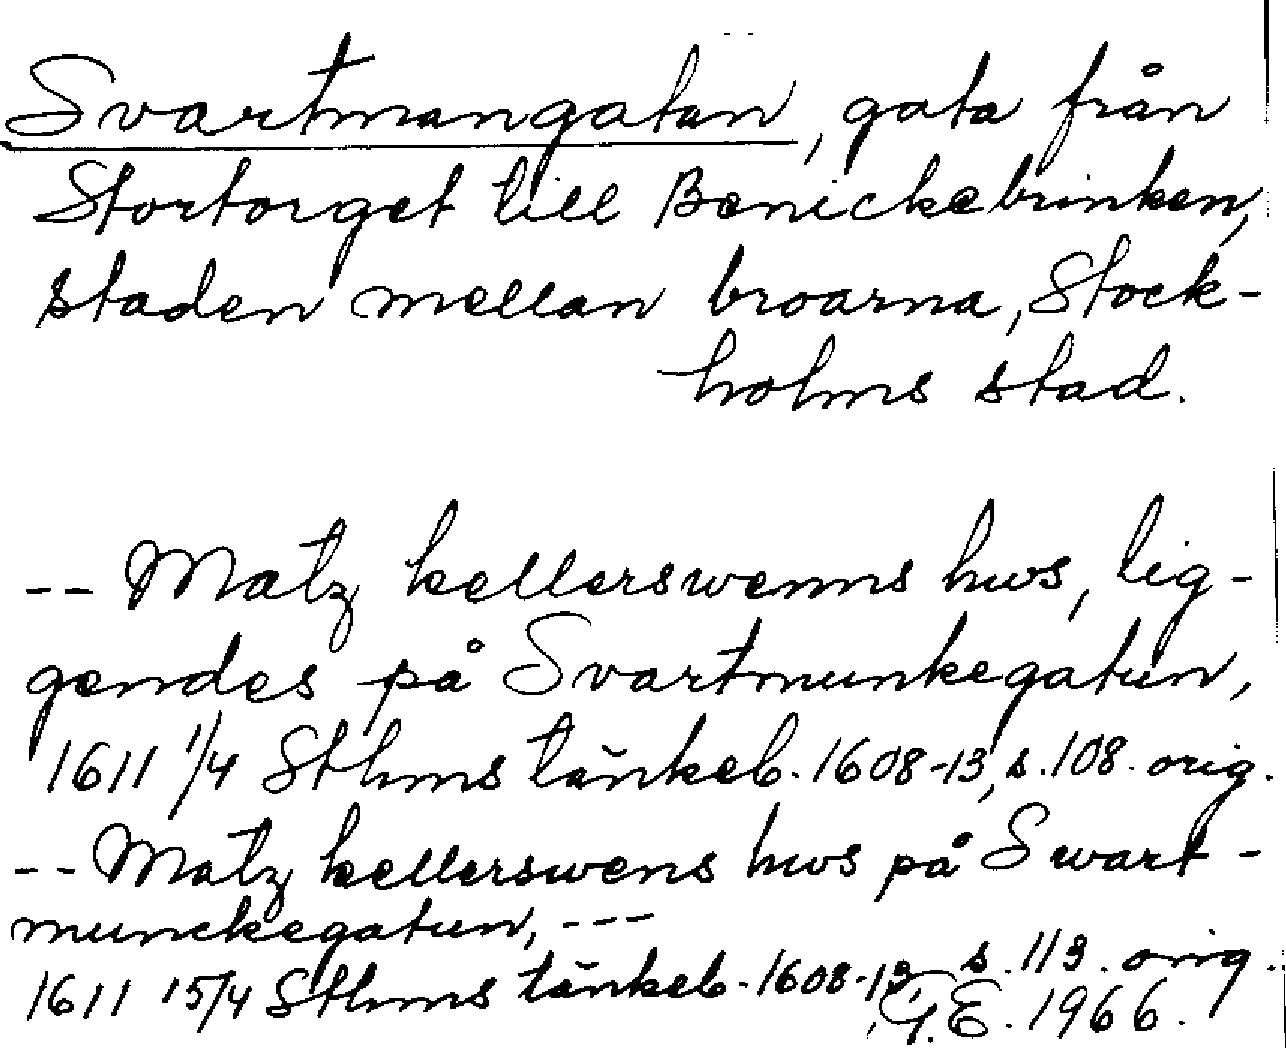 Svartmangatan, gata från
Stortorget till Benickebrinken,
staden mellan broarna, Stock-
holms stad.
-- Matz kellerswenns hws, lig-
gendes på Svartmunkegatun,
1611 1/4 Sthms tänkeb. 1608-13, s. 108. orig.
-- Matz kellerswens hws på Swart-
munckegatun, ---
1611 15/4 Sthms tänkeb. 1608-13, s. 113. orig.
G.E. 1966.